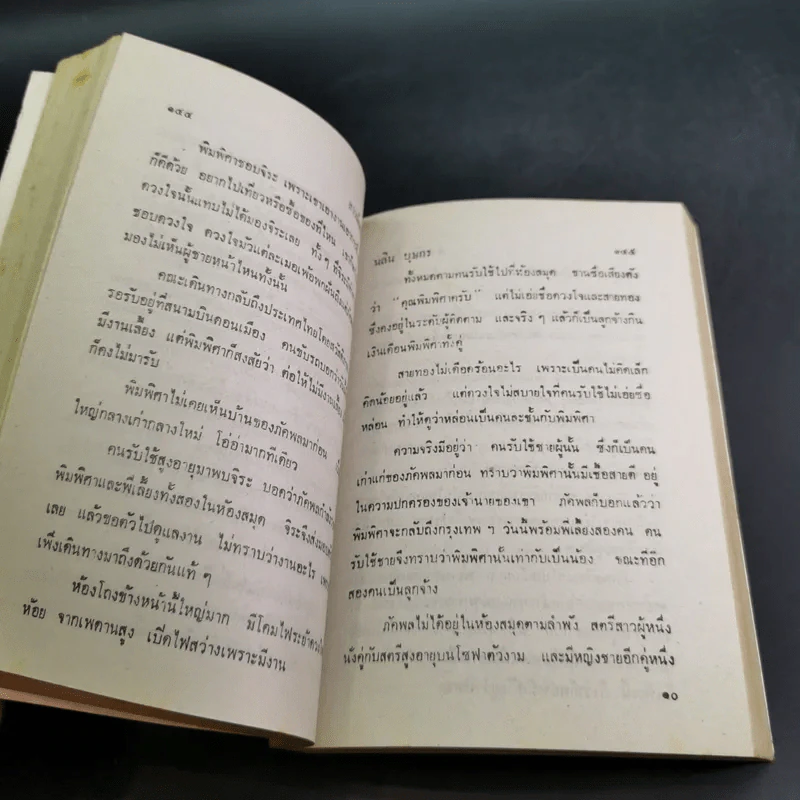 ๑๔๔
พิมพ์ศาชอบจิระ เพราะเขาเอางานเอา
ก็ดีด้วย อยากไปเที่ยวหรือซื้อของที่ไหน
ดวงใจนั้นแทบไม่ได้มองจิระเลย ทั้ง ๆ ที่จิระ
ชอบดวงใจ ดวงใจมัวแต่ละเมอเพ้อพกฝันถึง
มองไม่เห็นผู้ชายหน้าไหนทั้งนั้น
คณะเดินทางกลับถึงประเทศไทยโดยสวัสดิ
รอรับอยู่ที่สนามบินดอนเมือง คนขับรถบอกว่า
มีงานเลี้ยง แต่พิมพ์ศาก็สงสัยว่า ต่อให้ไม่มีงานเลี้ยง
ก็คงไม่มารับ
พิมพ์ศาไม่เคยเห็นบ้านของภัคพลมาก่อน
ใหญ่กลางเก่ากลางใหม่ โอ่อ่ามากทีเดียว
คนรับใช้สูงอายุมาพบจิระ บอกว่าภัคพล
พิมพ์ศาและพี่เลี้ยงทั้งสองในห้องสมุด จิระจึงส่ง
เลย แล้วขอตัวไปดูแลงาน ไม่ทราบว่างานอะไร
เพิ่งเดินทางมาถึงด้วยกันแท้ ๆ
ห้องโถงข้างหน้านี้ใหญ่มาก มีโคมไฟระย้า
ห้อย จากเพดานสูง เปิดไฟสว่างเพราะมีงาน
นลิน บุษกร ๑๔๕
ทั้งหมดตามคนรับใช้ไปที่ห้องสมุด ขานชื่อเสียงดัง
ว่า “คุณพิมพ์ศาครับ” แต่ไม่เอ่ยชื่อดวงใจและสายทอง
ซึ่งคงอยู่ในระดับผู้ติดตาม และจริง ๆ แล้วก็เป็นลูกจ้างกิน
เงินเดือนพิมพ์ศาทั้งคู่
สายทองไม่เดือดร้อนอะไร เพราะเป็นคนไม่คิดเล็ก
คิดน้อยอยู่แล้ว แต่ดวงใจไม่สบายใจที่คนรับใช้ไม่เอ่ยชื่อ
หล่อน ทำให้ดูว่าหล่อนเป็นคนละชั้นกับพิมพ์ศา
ความจริงมีอยู่ว่า คนรับใช้ชายผู้นั้น ซึ่งก็เป็นคน
เก่าแก่ของภัคพลมาก่อน ทราบว่าพิมพ์ศานั้นมีเชื้อสายดี อยู่
ในความปกครองของเจ้านายของเขา ภัคพลก็บอกแล้วว่า
พิมพ์ศาจะกลับถึงกรุงเทพ ๆ วันนี้พร้อมพี่เลี้ยงสองคน คน
รับใช้ชายจึงทราบว่าพิมพ์ศานั้นเท่ากับเป็นน้อง ขณะที่อีก
สองคนเป็นลูกจ้าง
ภัคพลไม่ได้อยู่ในห้องสมุดตามลำพัง สตรีสาวผู้หนึ่ง
นั่งคู่กับสตรีสูงอายุบนโซฟาตัวงาม และมีหญิงชายอีกคู่หนึ่ง
๑๐